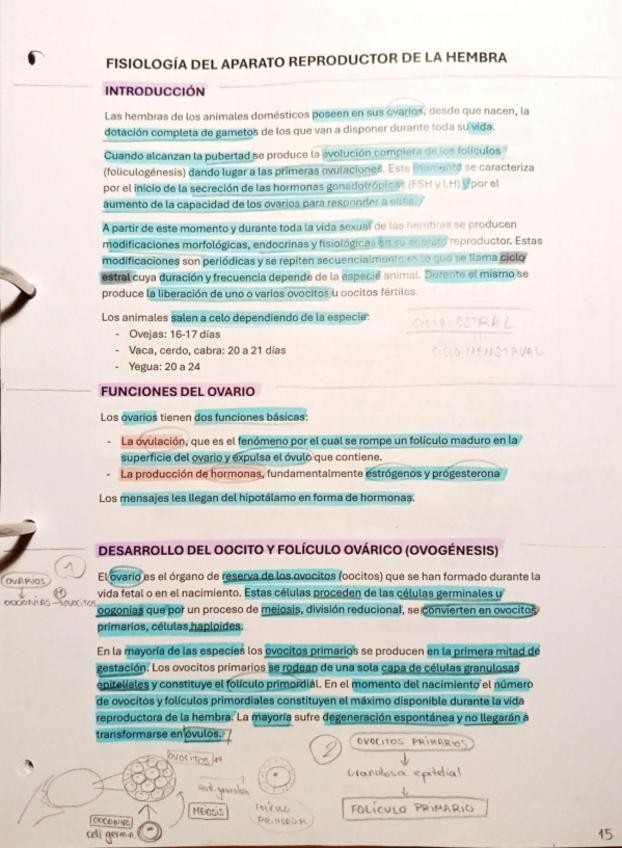 FISIOLOGÍA DEL APARATO REPRODUCTOR DE LA HEMBRA
INTRODUCCIÓN
Las hembras de los animales domésticos poseen en sus ovarios, desde que nacen, la
dotación completa de gametos de los que van a disponer durante toda su vida.
Cuando alcanzan la pubertad se produce la evolución completa de los folículos
(foliculogénesis) dando lugar a las primeras ovulaciones. Este momento se caracteriza
por el inicio de la secreción de las hormonas gonadotrópicas (FSH y LH) y por el
aumento de la capacidad de los ovarios para responder a ellas.
A partir de este momento y durante toda la vida sexual de las hembras se producen
modificaciones morfológicas, endocrinas y fisiológicas en su aparato reproductor. Estas
modificaciones son periódicas y se repiten secuencialmente es lo que se llama ciclo
estral cuya duración y frecuencia depende de la especie animal. Durante el mismo se
produce la liberación de uno o varios ovocitos u oocitos fértiles.
Los animales salen a celo dependiendo de la especie:
- Ovejas: 16-17 días
CICLO ESTRAL
- Vaca, cerdo, cabra: 20 a 21 días
CICLO MENSTRUAL
- Yegua: 20 a 24
FUNCIONES DEL OVARIO
Los ovarios tienen dos funciones básicas:
- La ovulación, que es el fenómeno por el cual se rompe un folículo maduro en la
superficie del ovario y expulsa el óvulo que contiene.
- La producción de hormonas, fundamentalmente estrógenos y progesterona
Los mensajes les llegan del hipotálamo en forma de hormonas.
DESARROLLO DEL OOCITO Y FOLÍCULO OVÁRICO (OVOGÉNESIS)
1
OVARIOS
OOGONIAS → OVOCITOS
El ovario es el órgano de reserva de los ovocitos (oocitos) que se han formado durante la
vida fetal o en el nacimiento. Estas células proceden de las células germinales u
oogonias que por un proceso de meiosis, división reducional, se convierten en ovocitos
primarios, células haploides.
En la mayoría de las especies los ovocitos primarios se producen en la primera mitad de
gestación. Los ovocitos primarios se rodean de una sola capa de células granulosas
epiteliales y constituye el folículo primordial. En el momento del nacimiento el número
de ovocitos y folículos primordiales constituyen el máximo disponible durante la vida
reproductora de la hembra. La mayoría sufre degeneración espontánea y no llegarán a
transformarse en óvulos.
2
OVOCITOS PRIMARIOS
Granulosa epitelial
FOLÍCULO PRIMARIO
OVOCITOS 1º
MEIOSIS
OOGONIAS
cel. germin
FOLÍCULO
15